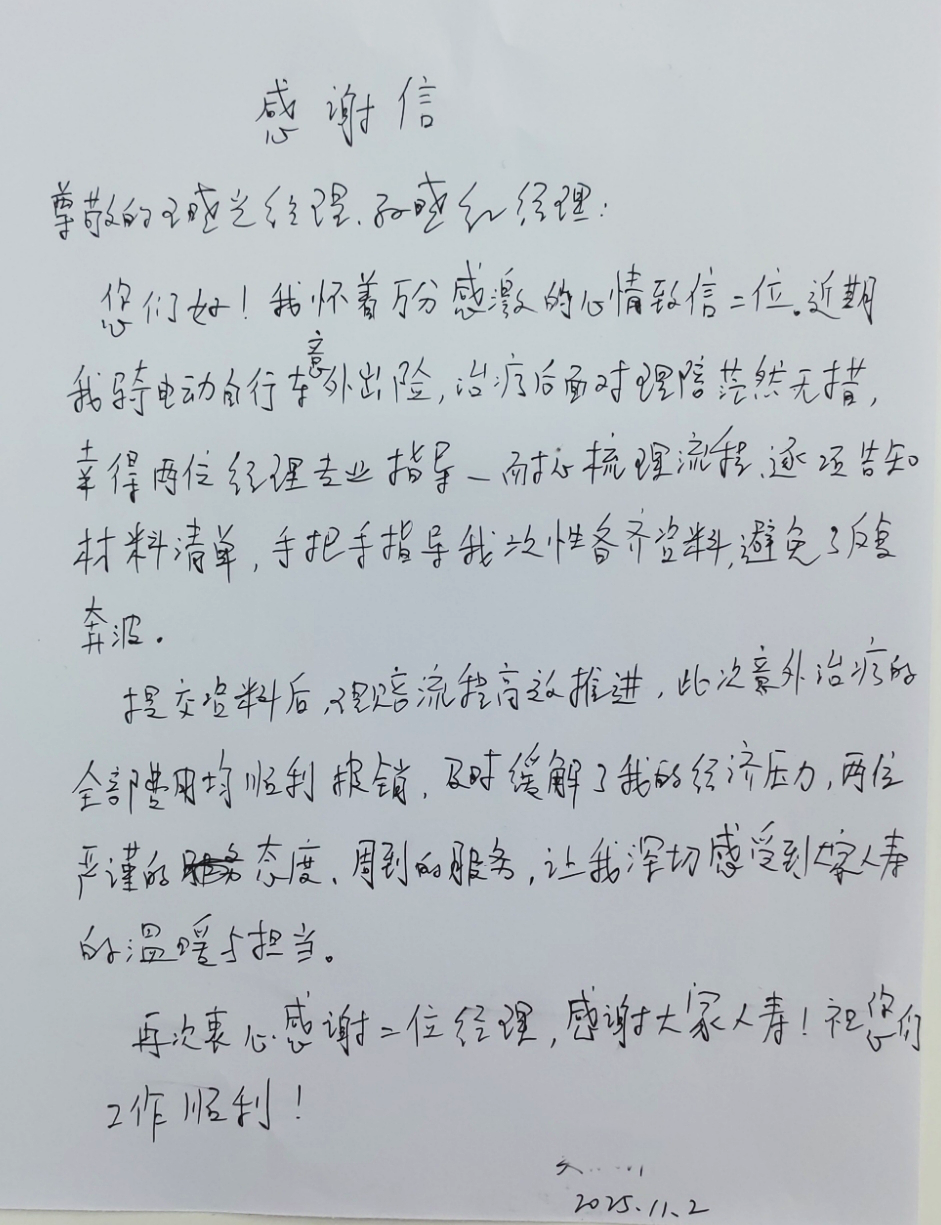 感谢信
尊敬的王盛兰经理、孙盛红经理：
您们好！我怀着万分感激的心情致信二位。近期
我骑电动自行车意外出险，治疗后面对理赔茫然无措，
幸得两位经理专业指导—耐心梳理流程、逐项告知
材料清单，手把手指导我一次性备齐资料，避免了反复
奔波。
提交资料后，理赔流程高效推进，此次意外治疗的
全部费用均顺利报销，及时缓解了我的经济压力，两位
严谨的态度、周到的服务，让我深切感受到大家人寿
的温暖与担当。
再次衷心感谢二位经理，感谢大家人寿！祝您们
工作顺利！
2025.11.2